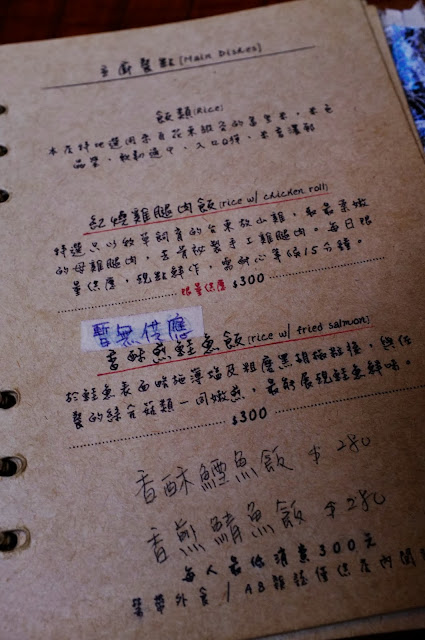 主廚餐點(Main Dishes)
飯類(Rice)
本店特地選用來自花東縱谷的米,米色
品質,軟黏適中,入口Q彈,米香濃郁
紅燒雞腿肉飯(rice w/ chicken roll)
特選只以牧草飼育的台東放山雞,和最柔嫩
的母雞腿肉,去骨秘製手工雞腿肉。每日限
量供應,現點鮮作,需耐心等候15分鐘。
限量供應 $300
暫無供應
香酥煎鮭魚飯(rice w/ fried salmon)
於鮭魚表面略施薄鹽及粗磨黑胡椒粒後,與任
餐的綜合菇類一同嫩煎,最能展現鮭魚鮮味。
$300
香酥鱈魚飯 $280
香煎鯖魚飯 $280
每人最低消費300元
禁帶外食/